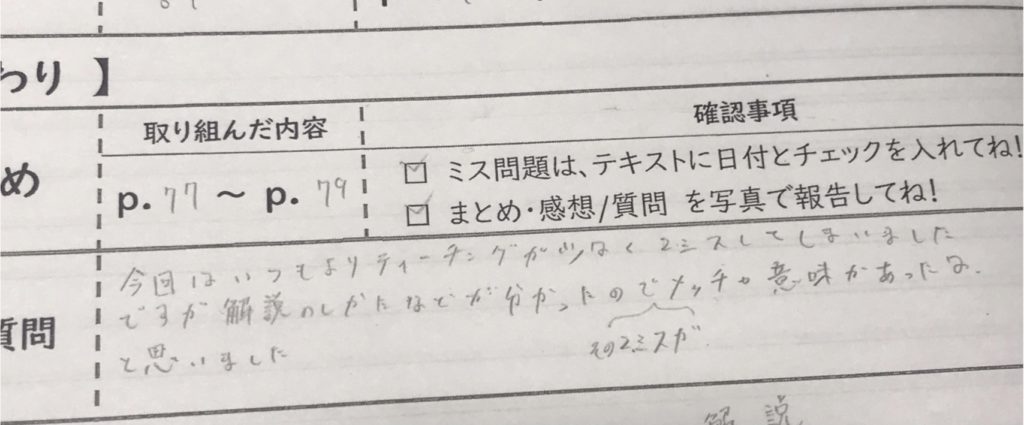 わり 】
取り組んだ内容
確認事項
め
p. 77 ～ p. 79
☑ ミス問題は、テキストに日付とチェックを入れてね!
☑ まとめ・感想/質問 を写真で報告してね!
質問
今回はいつもよりティーチングが少なく2ミスしてしまいました
ですが解説のしかたなどが分かったのでメッチャ意味があったな.
その2ミスが.
と思いました
解説